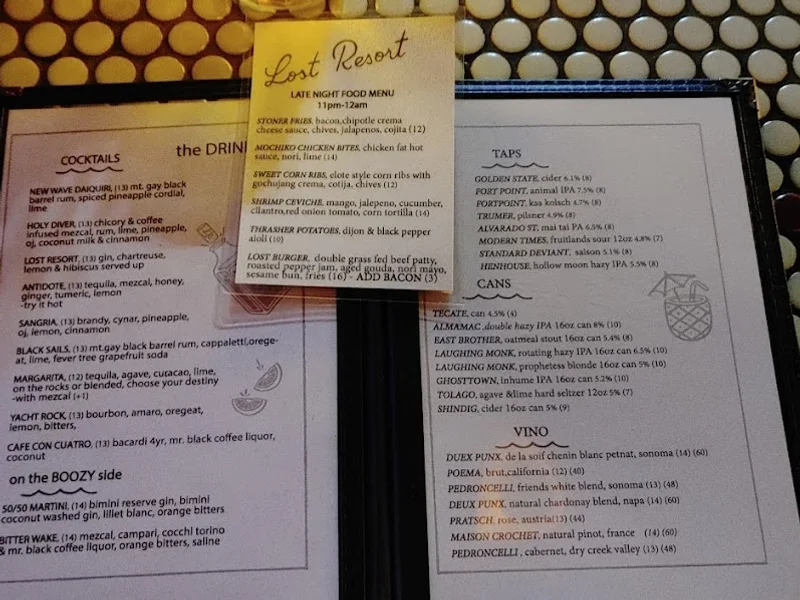 Lost Resort
LATE NIGHT FOOD MENU
11pm-12am
STONER FRIES, bacon,chipotle crema
cheese sauce, chives, jalapenos, cojita (12)
MOCHIKO CHICKEN BITES, chicken fat hot
sauce, nori, lime (14)
SWEET CORN RIBS, elote style corn ribs with
gochujang crema, cotija, chives (12)
SHRIMP CEVICHE, mango, jalepeno, cucumber,
cilantro,red onion tomato, corn tortilla (14)
THRASHER POTATOES, dijon & black pepper
aioli (10)
LOST BURGER, double grass fed beef patty,
roasted pepper jam, aged gouda, nori mayo,
sesame bun, fries (16) - ADD BACON (3)
the DRIN
COCKTAILS
NEW WAVE DAIQUIRI, (13) mt. gay black
barrel rum, spiced pineapple cordial,
lime
HOLY DIVER, (13) chicory & coffee
infused mezcal, rum, lime, pineapple,
oj, coconut milk & cinnamon
LOST RESORT, (13) gin, chartreuse,
lemon & hibiscus served up
ANTIDOTE, (13) tequila, mezcal, honey,
ginger, tumeric, lemon
-try it hot
SANGRIA, (13) brandy, cynar, pineapple,
oj, lemon, cinnamon
BLACK SAILS, (13) mt.gay black barrel rum, cappaletti,orege-
at, lime, fever tree grapefruit soda
MARGARITA, (12) tequila, agave, curacao, lime,
on the rocks or blended, choose your destiny
-with mezcal (+1)
YACHT ROCK, (13) bourbon, amaro, oregeat,
lemon, bitters,
CAFE CON CUATRO, (13) bacardi 4yr, mr. black coffee liquor,
coconut
on the BOOZY side
50/50 MARTINI, (14) bimini reserve gin, bimini
coconut washed gin, lillet blanc, orange bitters
BITTER WAKE, (14) mezcal, campari, cocchi torino
& mr. black coffee liquor, orange bitters, saline
TAPS
GOLDEN STATE, cider 6.1% (8)
FORT POINT, animal IPA 7.5% (8)
FORTPOINT, ksa kolsch 4.7% (8)
TRUMER, pilsner 4.9% (8)
ALVARADO ST, mai tai PA 6.5% (8)
MODERN TIMES, fruitlands sour 12oz 4.8% (7)
STANDARD DEVIANT, saison 5.1% (8)
HENHOUSE, hollow moon hazy IPA 5.5% (8)
CANS
TECATE, can 4.5% (4)
ALMAMAC ,double hazy IPA 16oz can 8% (10)
EAST BROTHER, oatmeal stout 16oz can 5.4% (8)
LAUGHING MONK, rotating hazy IPA 16oz can 6.5% (10)
LAUGHING MONK, prophetess blonde 16oz can 5% (10)
GHOSTTOWN, inhume IPA 16oz can 5.2% (10)
TOLAGO, agave &lime hard seltzer 12oz 5% (7)
SHINDIG, cider 16oz can 5% (9)
VINO
DUEX PUNX, de la soif chenin blanc petnat, sonoma (14) (60)
POEMA, brut,california (12) (40)
PEDRONCELLI, friends white blend, sonoma (13) (48)
DEUX PUNX, natural chardonay blend, napa (14) (60)
PRATSCH, rose, austria(13) (44)
MAISON CROCHET, natural pinot, france (14) (60)
PEDRONCELLI , cabernet, dry creek valley (13) (48)